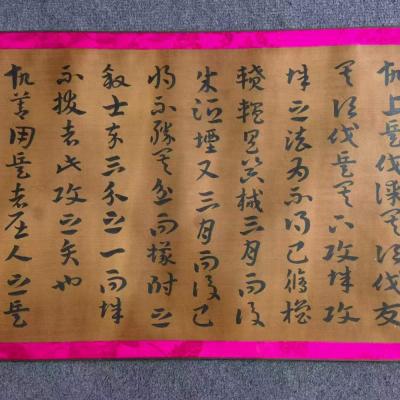 故上兵伐謀其次伐交
其次伐兵其下攻城攻
城之法為不得已脩櫓
轒轀具器械三月而後
成距堙又三月而後已
將不勝其忿而蟻附之
殺士卒三分之一而城
不拔者此攻之災也
故善用兵者屈人之兵